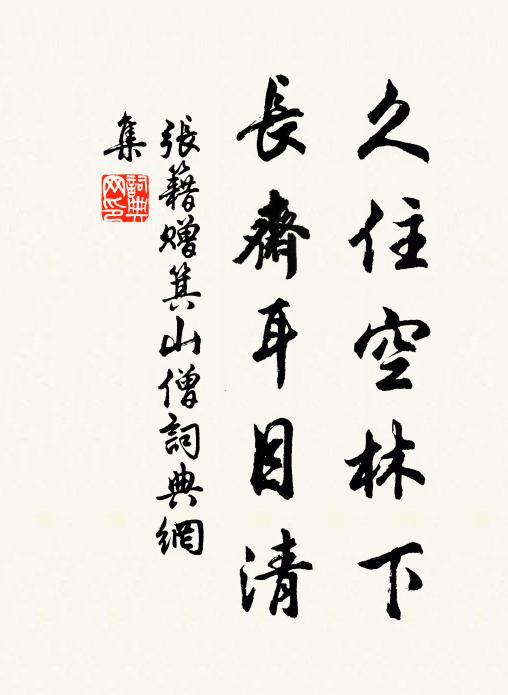 久住空林下
長齋耳目清
張籍贈箕山僧詞典網
集
詞典
网印